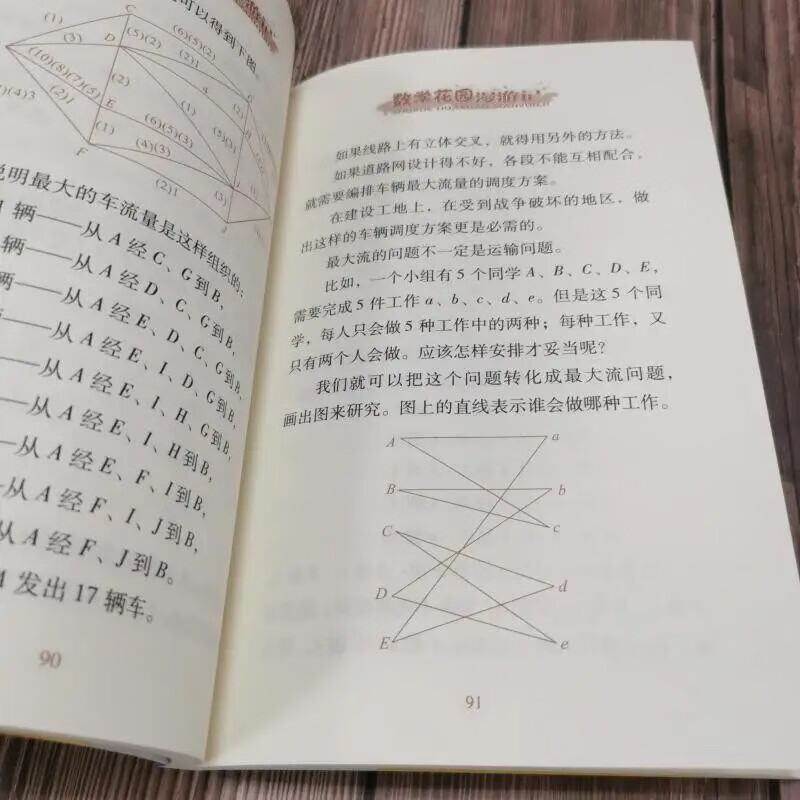 可以得到下图。
(1)
(3)
(6)(5)(2)
C
D
(5)(2)
(2)1
(10)(8)(7)(5)
(2)
4
G
(1)
(5)(3)
E
(6)(5)(3)
(1)
(4)(3)
F
(2)1
I
J
说明最大的车流量是这样组织的：
辆——从A经C、G到B，
辆——从A经D、C、G到B，
辆——从A经E、D、C、G到B，
——从A经E、I、D、G到B，
——从A经E、I、H、G到B，
——从A经E、I、H到B，
——从A经E、F、I到B，
—从A经F、I、J到B，
从A经F、J到B。
发出17辆车。
90
数学花园漫游记
如果线路上有立体交叉，就得用另外的方法。
如果道路网设计得不好，各段不能互相配合，
就需要编排车辆最大流量的调度方案。
在建设工地上，在受到战争破坏的地区，做
出这样的车辆调度方案更是必需的。
最大流的问题不一定是运输问题。
比如，一个小组有5个同学A、B、C、D、E，
需要完成5件工作a、b、c、d、e。但是这5个同
学，每人只会做5种工作中的两种；每种工作，又
只有两个人会做。应该怎样安排才妥当呢？
我们就可以把这个问题转化成最大流问题，
画出图来研究。图上的直线表示谁会做哪种工作。
A
a
B
b
c
C
d
D
E
e
91